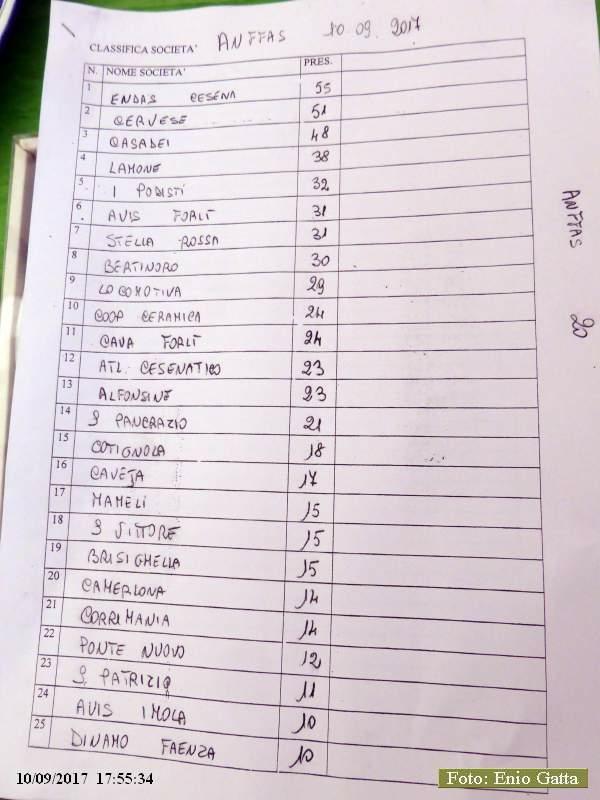 CLASSIFICA SOCIETA' ANFFAS 10 09. 2017
N. NOME SOCIETA' PRES.
1 ENDAS CESENA 55
2 CERVESE 51
3 CASADEI 48
4 LAMONE 38
5 I PODISTI 32
6 AVIS FORLÌ 31
7 STELLA ROSSA 31
8 BERTINORO 30
9 LOCOMOTIVA 29
10 COOP CERAMICA 24
11 CAVA FORLÌ 24
12 ATL. CESENATICO 23
13 ALFONSINE 23
14 S PANCRAZIO 21
15 COTIGNOLA 18
16 CAVEJA 17
17 MAMELI 15
18 S VITTORE 15
19 BRISIGHELLA 15
20 CAMERLONA 14
21 CORRIMANIA 14
22 PONTE NUOVO 12
23 S. PATRIZIO 11
24 AVIS IMOLA 10
25 DINAMO FAENZA 10
ANFFAS 20
10/09/2017 17:55:34
Foto: Enio Gatta